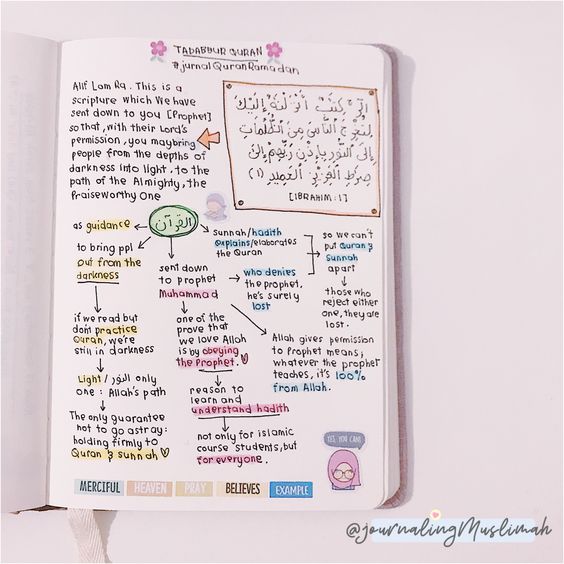 TADABBUR QURAN
#jurnalQuranRamadan
Alif Lam Ra. This is a
scripture which We have
sent down to you [Prophet]
so that, with their Lord's
permission, you may bring
people from the depths of
darkness into light, to the
path of the Almighty, the
Praiseworthy One
الٓر كِتَٰبٌ أَنْزَلْنَٰهُ إِلَيْكَ
لِتُخْرِجَ النَّاسَ مِنَ الظُّلُمَاتِ
إِلَى النُّورِ بِإِذْنِ رَبِّهِمْ إِلَىٰ
صِرَٰطِ الْعَزِيزِ الْحَمِيدِ (١)
[IBRAHIM:1]
القرآن
as guidance
to bring ppl
out from the
darkness
if we read but
don't practice
Quran, we're
still in darkness
Light / النور only
one: Allah's path
The only guarantee
not to go astray:
holding firmly to
Quran & sunnah
sent down
to prophet
Muhammad
one of the
prove that
we love Allah
is by obeying
the Prophet.
reason to
learn and
understand hadith
not only for islamic
course students, but
for everyone.
sunnah/hadith
explains/elaborates
the Quran
who denies
the prophet,
he's surely
lost
so we can't
put Quran &
Sunnah
apart
those who
reject either
one, they are
lost.
Allah gives permission
to Prophet means;
whatever the prophet
teaches, it's 100%
from Allah.
YES, YOU CAN!
MERCIFUL HEAVEN PRAY BELIEVES EXAMPLE
@journalingMuslimah